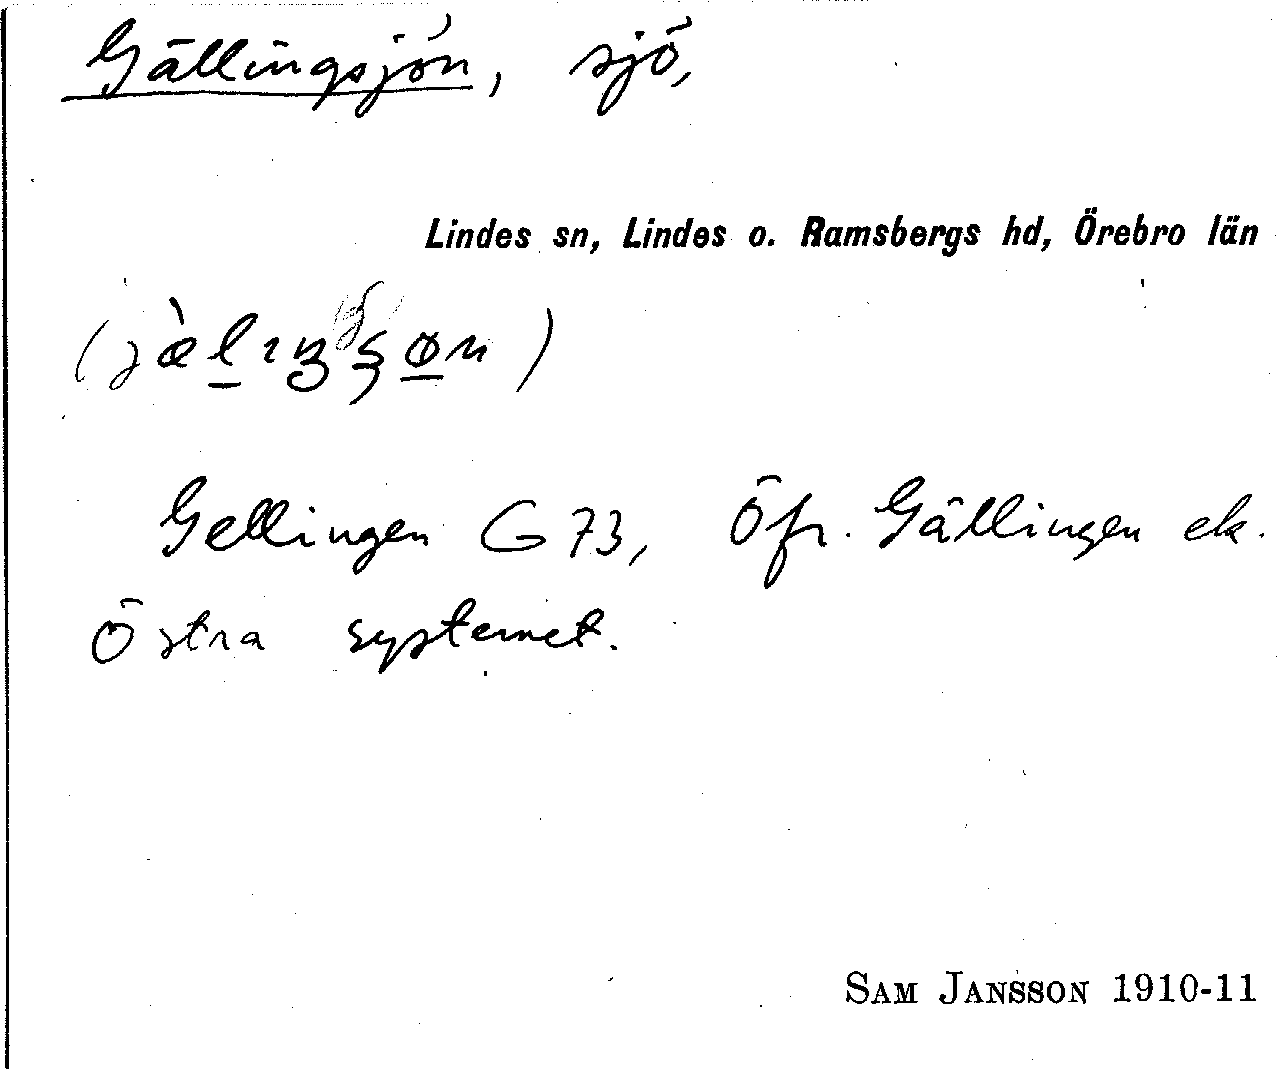 Gällingsjön, sjö,
Lindes sn, Lindes o. Ramsbergs hd, Örebro län
Gellingen G 73, Öfr. Gällingen ek.
Östra systemet.
SAM JANSSON 1910-11